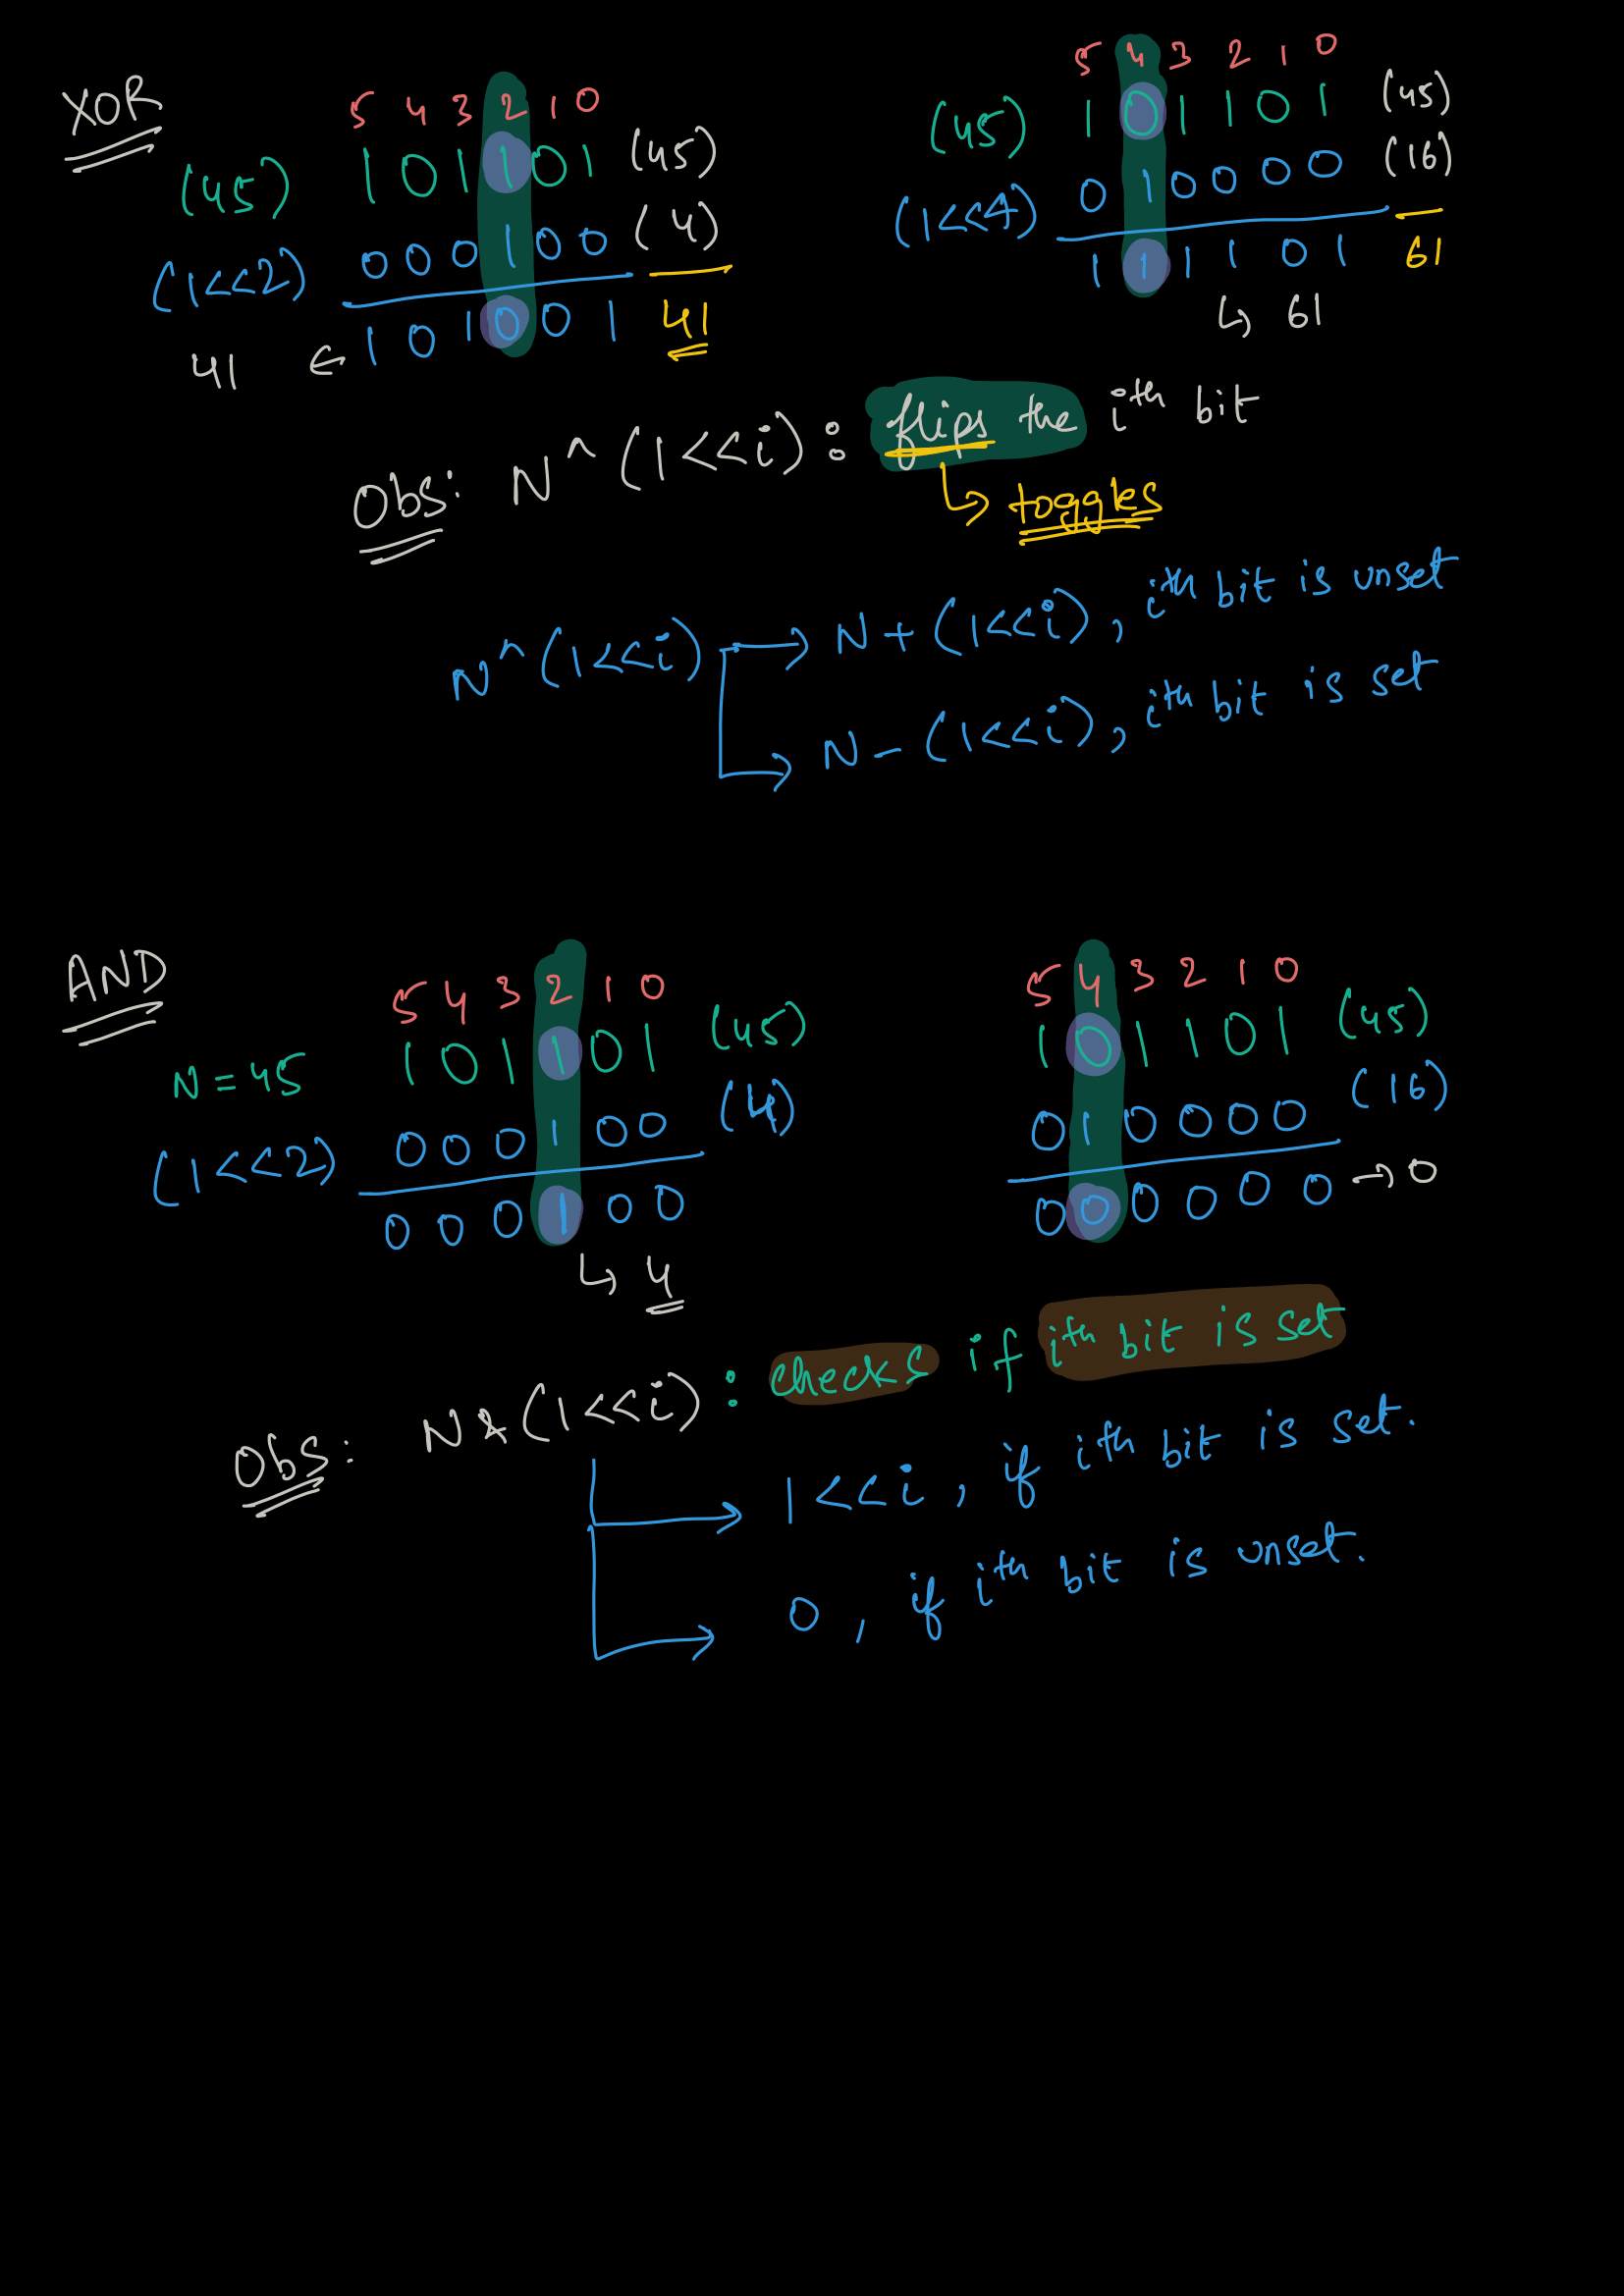 XOR
5 4 3 2 1 0
(45) 1 0 1 1 0 1 (45)
(1<<2) 0 0 0 1 0 0 (4)
41 ← 1 0 1 0 0 1 41
5 4 3 2 1 0
(45) 1 0 1 1 0 1 (45)
(1<<4) 0 1 0 0 0 0 (16)
1 1 1 1 0 1 61
↳ 61
Obs: N^(1<<i): flips the ith bit
↳ toggles
N^(1<<i) → N+(1<<i), ith bit is unset
→ N-(1<<i), ith bit is set
AND
5 4 3 2 1 0
N=45 1 0 1 1 0 1 (45)
(1<<2) 0 0 0 1 0 0 (4)
0 0 0 1 0 0
↳ 4
5 4 3 2 1 0
1 0 1 1 0 1 (45)
0 1 0 0 0 0 (16)
0 0 0 0 0 0 → 0
Obs: N&(1<<i): checks if ith bit is set
→ 1<<i, if ith bit is set.
→ 0, if ith bit is unset.